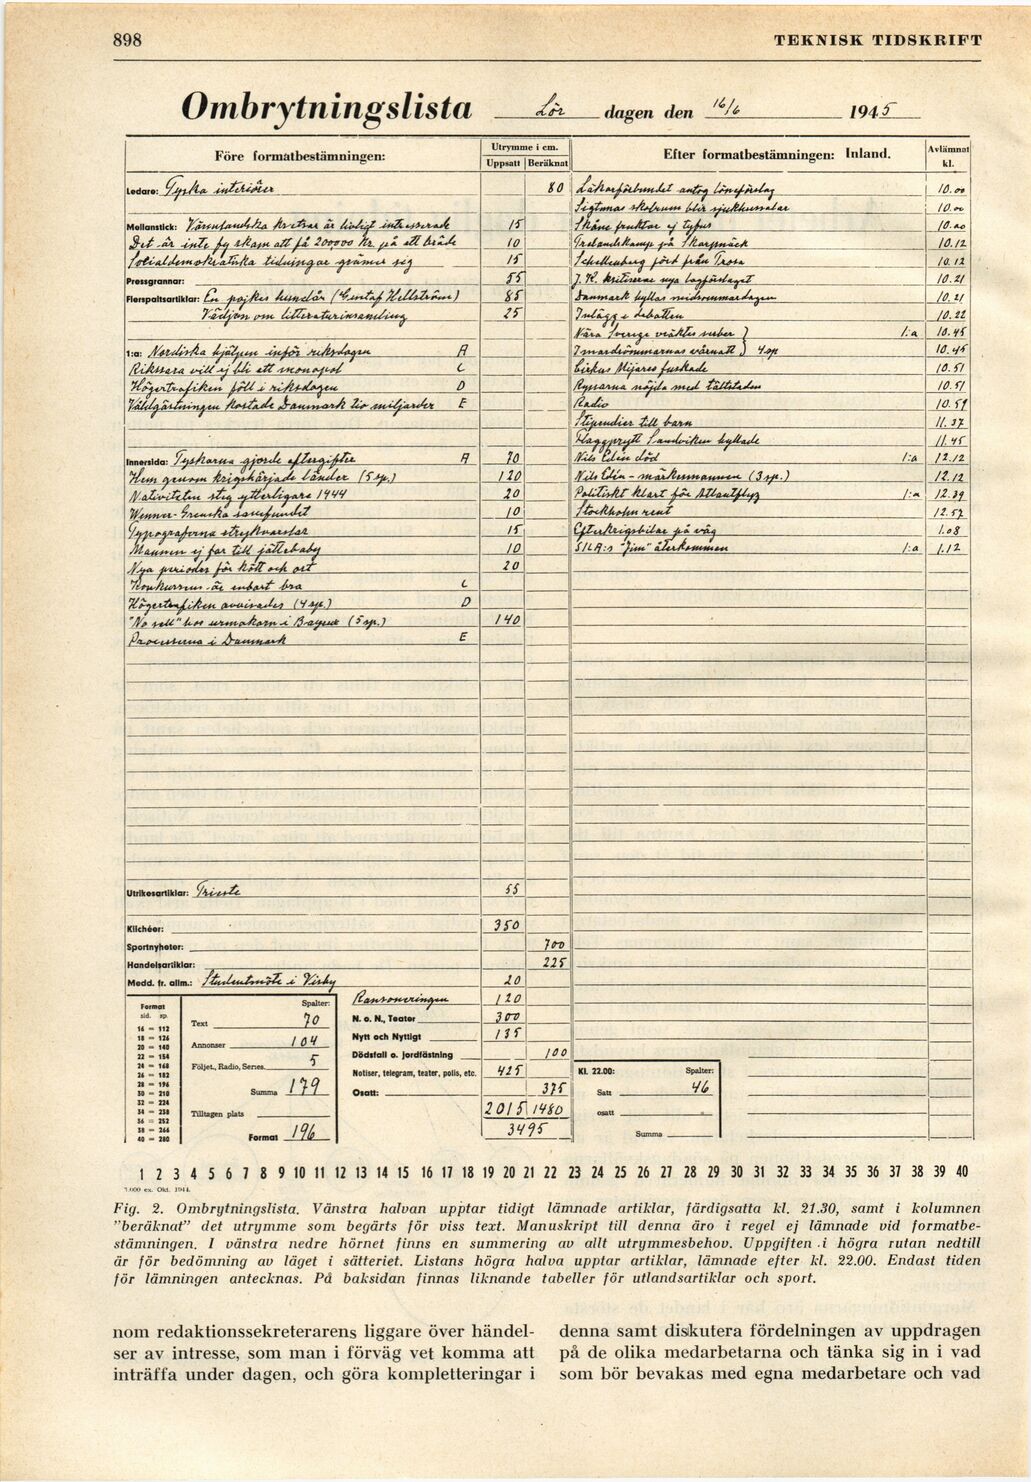 898 TEKNISK TIDSKRIFT
Ombrytningslista Lör dagen den 16/6 1945
Före formatbestämningen:
Utrymme i cm.
Uppsatt Beräknat
Efter formatbestämningen: Inland.
Avlämnat kl.
Ledare: Tyska interiörer 80
Mellanstick: kretsar är livligt intresserade 15
Det är inte fy skam att få 200000 kr. på ett bräde 10
Socialdemokratiska tidningar grämer sig 15
Pressgrannar: 55
Flerspaltsartiklar: En pojkes hemelår (Gustaf Hellström) 85
Väljön om litteraturinsamling 25
1:a: Nordiska hjälpen inför riksdagen A
Rikssara vill ej bli ett monopol C
Högertrafiken föll i riksdagen D
Våldgästningen kostade Danmark tio miljarder E
Innersida: Tyskarna gjorde eftergifter A 70
Hem genom krigshärjade länder (5 sp.) 120
Nativiteten steg ytterligare 1944 20
Wenner-Grenska samfundet 10
Typograferna strejkvarslar 15
Mannen ej far till 10
Nya perioder för kött och ost 20
Konkurrens är enbart bra C
Högertrafiken avvisades (4 sp.) D
"No sell" hos urmakarn i (5 sp.) 140
Processerna i Danmark E
Läkarförbundet antog löneförslag 10.00
Sigtunas skolrum blir sjukhussalar 10.00
Skåne fruktar ej tyfus 10.00
på Skarpnäck 10.12
Schellenberg förd från Trosa 10.12
J. K. kritiserar nya lagförslaget 10.21
Danmark hyllas midsommardagen 10.21
Inlägg i debatten 10.22
Nära Sverige 1:a 10.45
Smardrömmarnas 4 sp 10.45
Cirkus Mijares fuskade 10.51
Ryssarna nöjda med tältstaden 10.51
Radio 10.51
Stipendier till barn 11.37
Flaggprytt Sandviken hyllade 11.45
Nils Edén död 1:a 12.12
Nils Edén - märkesmannen (3 sp.) 12.12
Politiskt klart för Atlantflyg 1:a 12.39
Stockholm rent 12.57
Efterkrigsbilar på väg 1.08
SILA:s "Jim" återkommen 1:a 1.12
Utrikesartiklar: Trieste 55
Klichéer: 350
Sportnyheter: 700
Handelsartiklar: 225
Medd. fr. allm.: Studentmöte i Visby 20
Format
sid. sp.
16 = 112
18 = 126
20 = 140
22 = 154
24 = 168
26 = 182
28 = 196
30 = 210
32 = 224
34 = 238
36 = 252
38 = 266
40 = 280
Spalter:
Text 70
Annonser 104
Följet., Radio, Series. 5
Summa 179
Tilltagen plats
Format 196
Ransoneringen 120
N. o. N., Teater 300
Nytt och Nyttigt 135
Dödsfall o. jordfästning 100
Notiser, telegram, teater, polis, etc. 425
Osatt: 375
2015 1480
3495
Kl. 22.00: Spalter:
Satt 46
osatt
Summa
1 2 3 4 5 6 7 8 9 10 11 12 13 14 15 16 17 18 19 20 21 22 23 24 25 26 27 28 29 30 31 32 33 34 35 36 37 38 39 40
ex. Okt. 1944.
Fig. 2. Ombrytningslista. Vänstra halvan upptar tidigt lämnade artiklar, färdigsatta kl. 21.30, samt i kolumnen
"beräknat" det utrymme som begärts för viss text. Manuskript till denna äro i regel ej lämnade vid formatbe-
stämningen. I vänstra nedre hörnet finns en summering av allt utrymmesbehov. Uppgiften i högra rutan nedtill
är för bedömning av läget i sätteriet. Listans högra halva upptar artiklar, lämnade efter kl. 22.00. Endast tiden
för lämningen antecknas. På baksidan finnas liknande tabeller för utlandsartiklar och sport.
nom redaktionssekreterarens liggare över händel-
ser av intresse, som man i förväg vet komma att
inträffa under dagen, och göra kompletteringar i
denna samt diskutera fördelningen av uppdragen
på de olika medarbetarna och tänka sig in i vad
som bör bevakas med egna medarbetare och vad